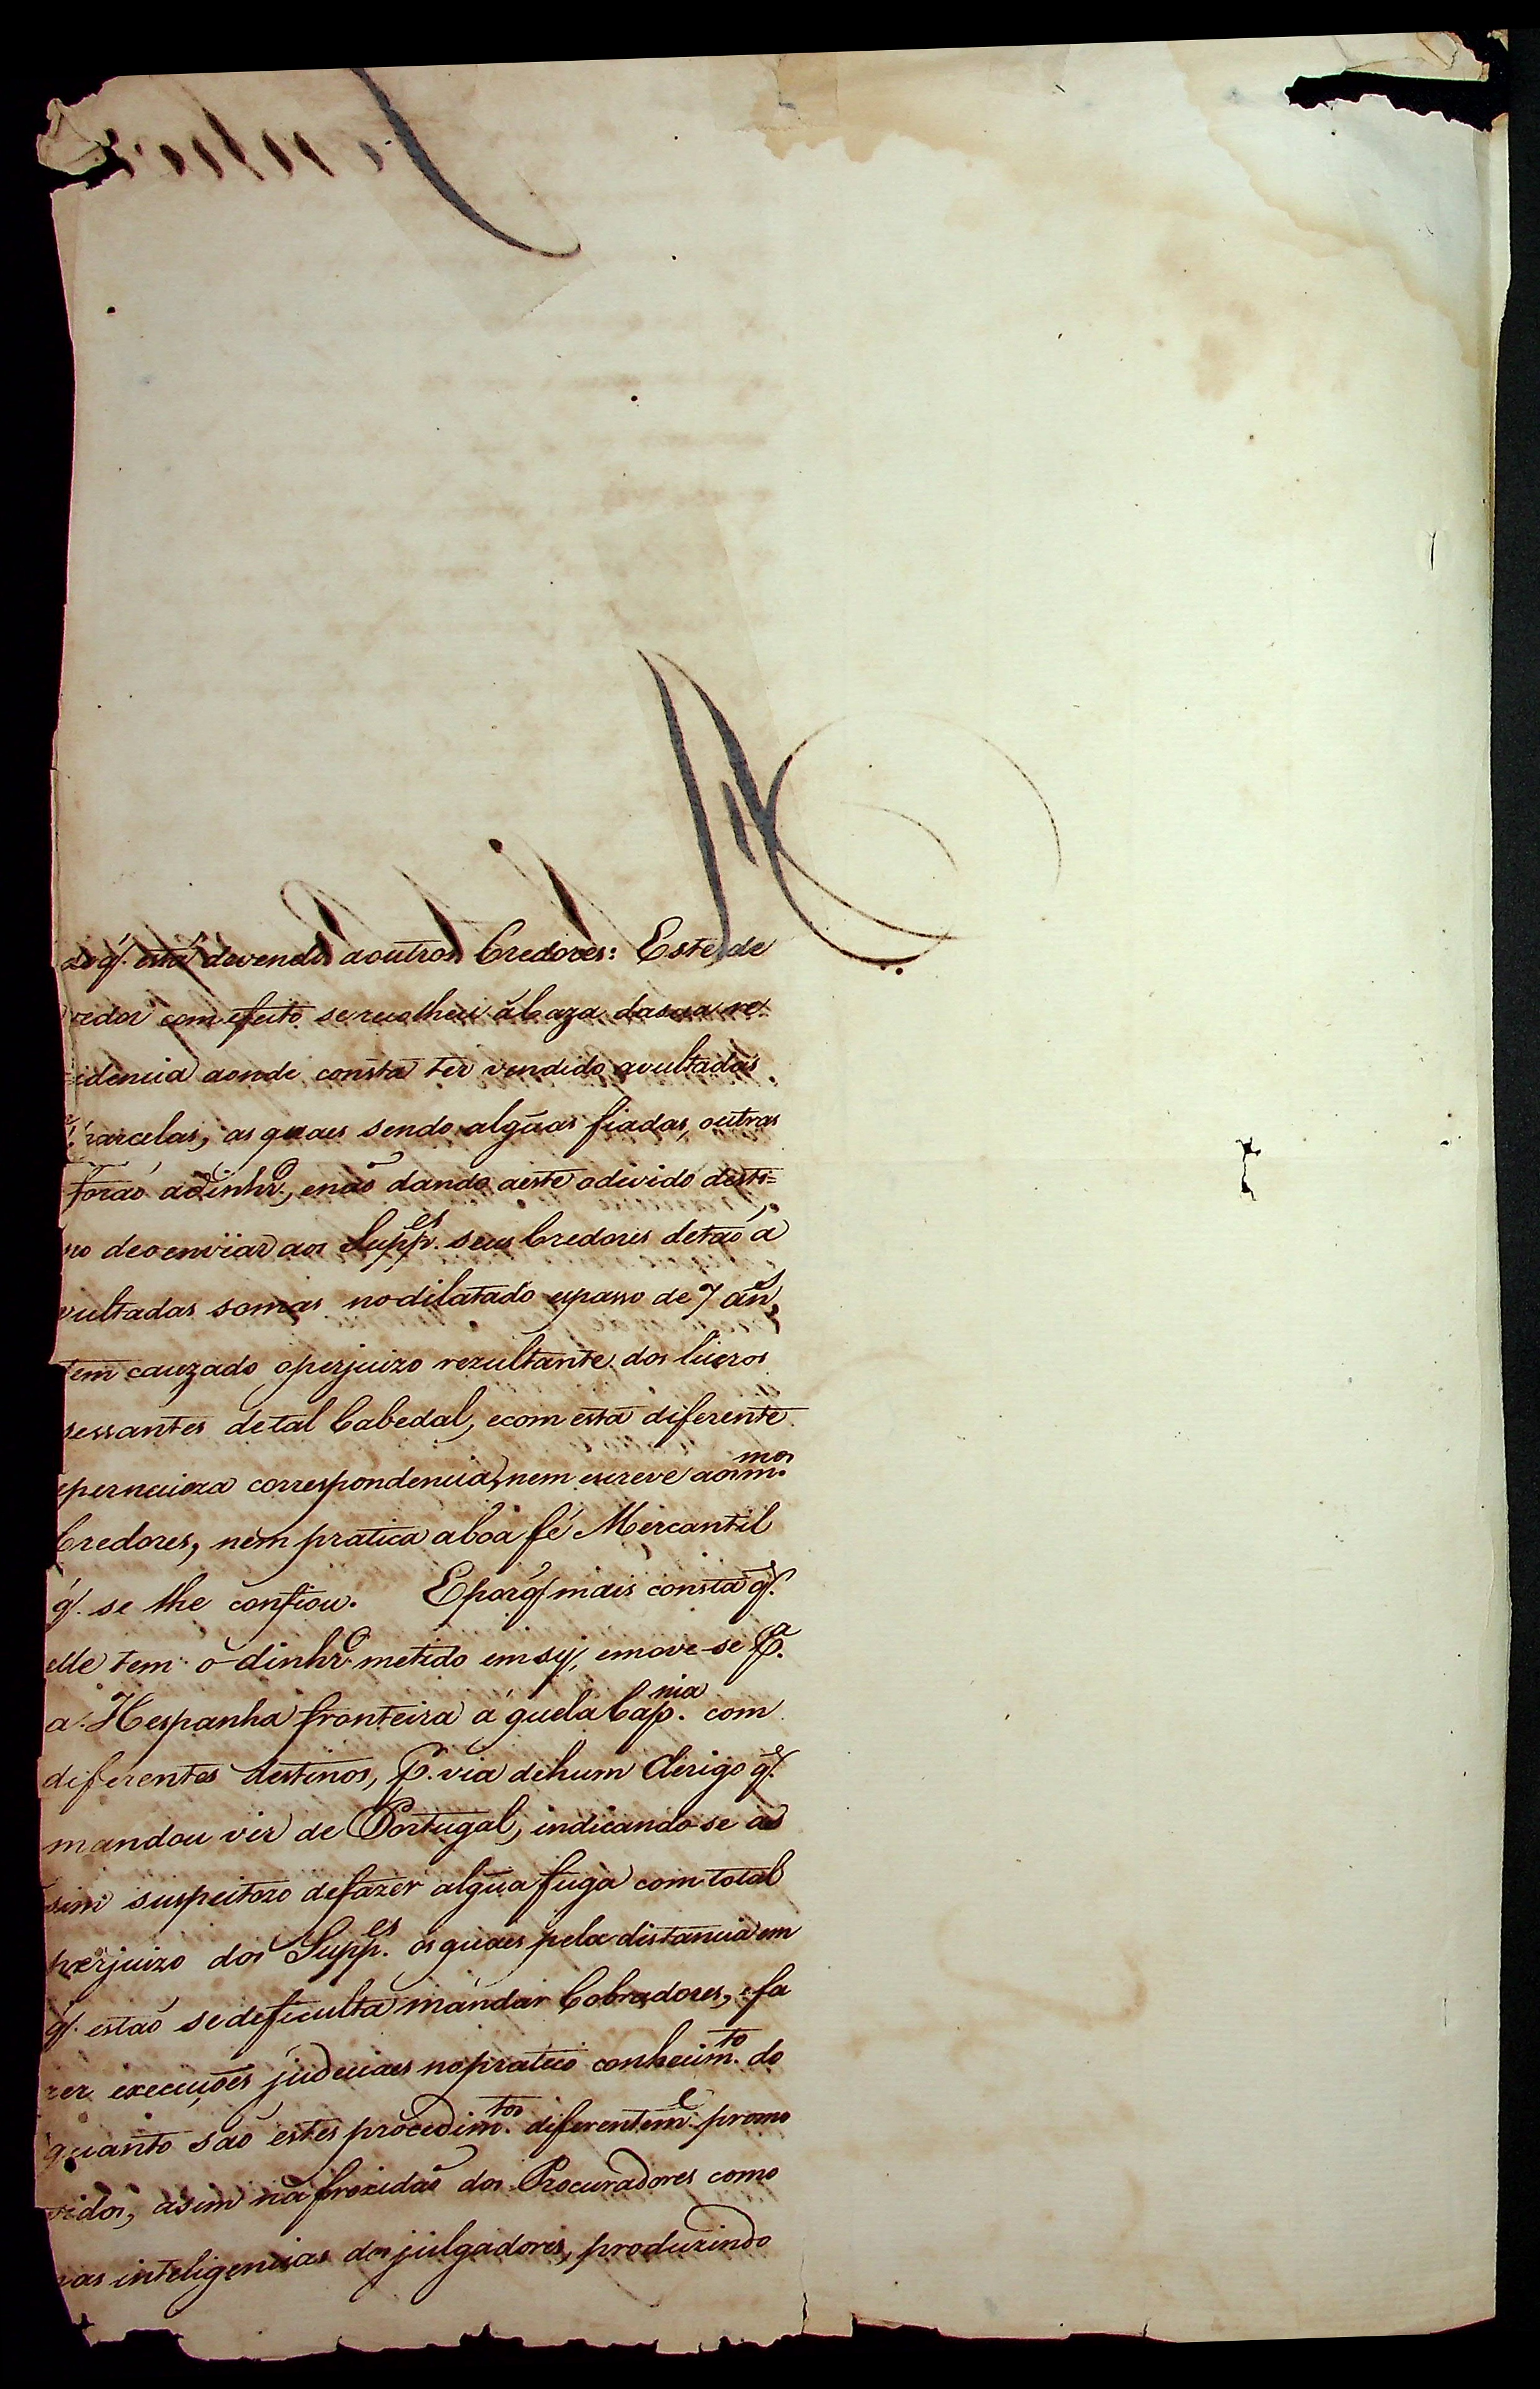 do q̃. está devendo a outros Credores: Este de
vedor com efeito se recolheu á Caza da sua re
zidencia aonde consta ter vendido avultadas
parcelas, as quaes sendo algũas fiadas, outras
forão a dinhr.º, e não dando a este o divido desti=
no de o enviar aos Supp.es seus Credores de tão a
vultadas somas no dilatado espasso de 7 an.s,
tem cauzado o perjuizo rezultante dos lucros
sessantes de tal Cabedal, e com esta diferente
e pernicioza correspondencia, nem escreve aos m.mos
Credores, nem pratica a boa fé Mercantil
q̃. se lhe confiou. E porq̃ mais consta q̃.
elle tem o dinhr.º metido em sy, e move-se p.ª
a Hespanha fronteira á quela Cap.nia com
diferentes destinos, p. via de hum Clerigo q̃.
mandou vir de Portugal, indicando-se as
sim suspeitozo de fazer algũa fuga com total
perjuizo dos Supp.es os quaes pela distancia em
q̃. estão se deficulta mandar Cobradores, e fa
zer execuções judiciaes no pratico conhecim.to do
quanto são estes procedim.tos diferentem.e promo
vidos, asim na froxidão dos Procuradores como
nas inteligencias dos julgadores, produzindo